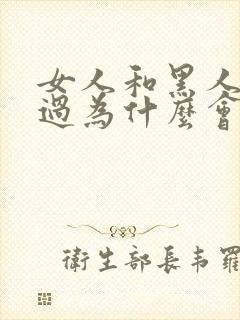 女人和黑人
過為什麼會
衛生部長韦羅